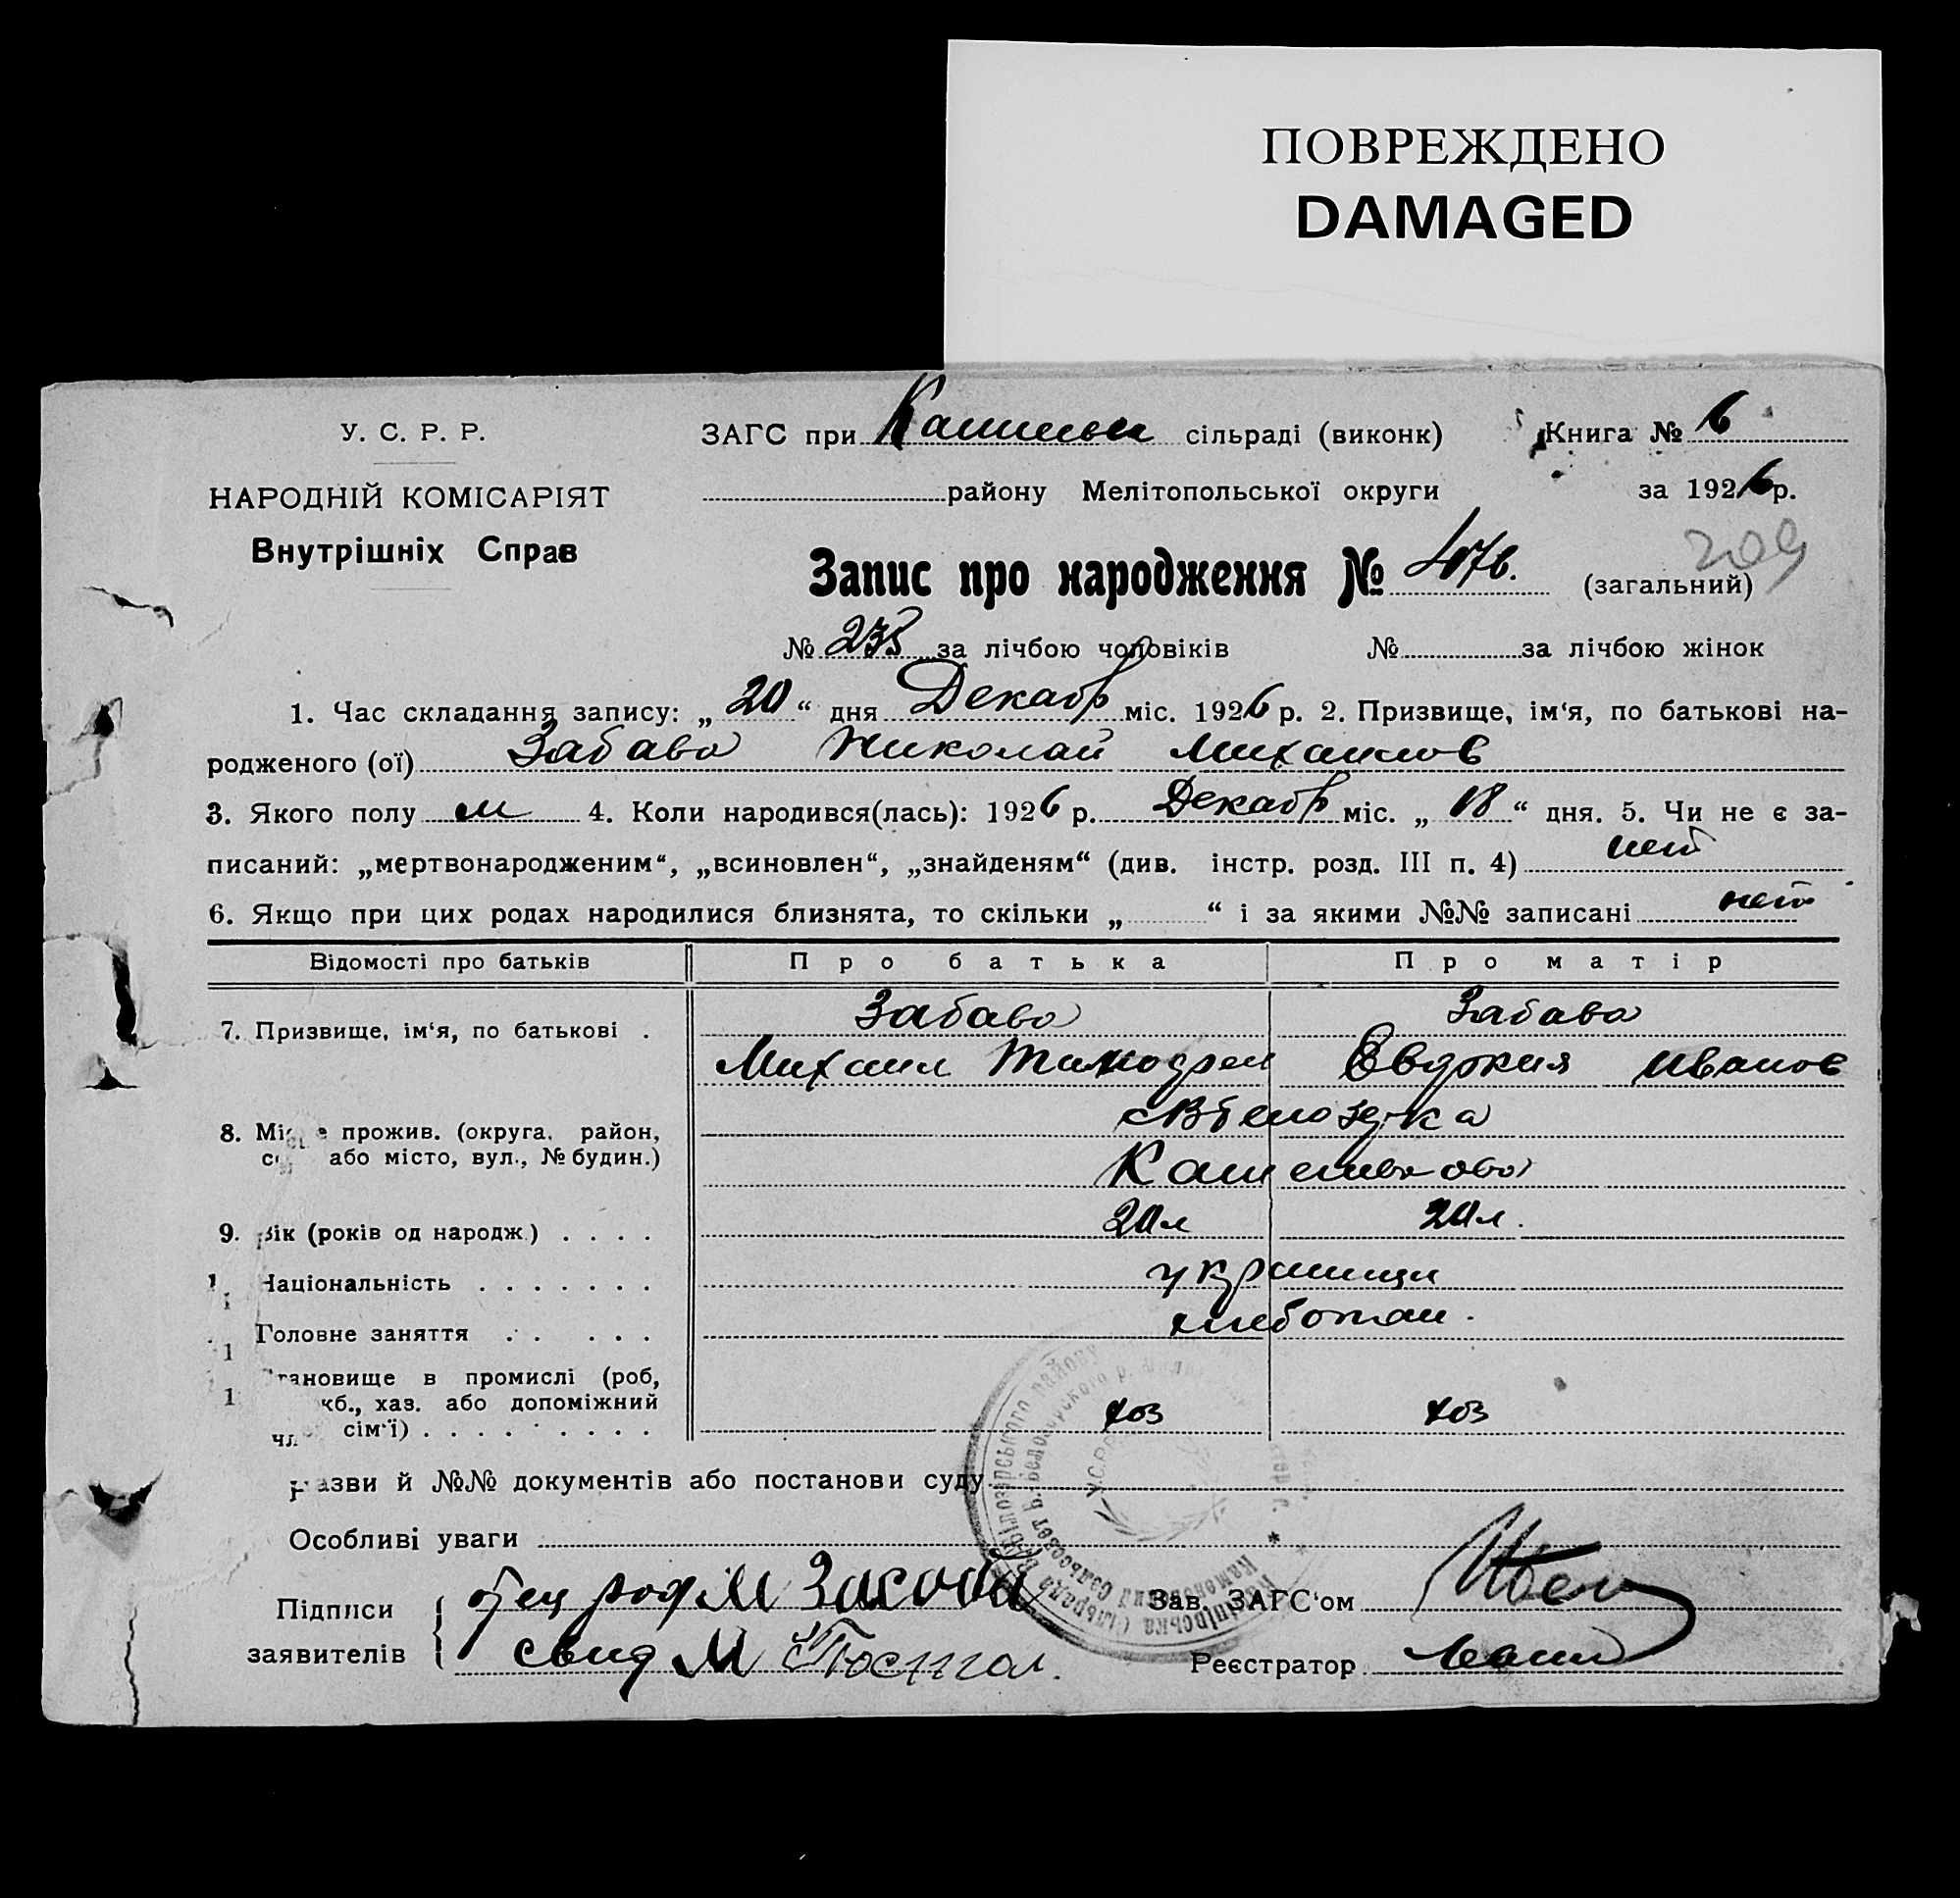 ПОВРЕЖДЕНО
DAMAGED
У. С. Р. Р.
НАРОДНІЙ КОМІСАРІЯТ
Внутрішніх Справ
ЗАГС при сільраді (виконк)
Книга № 6
району Мелітопольської округи
за 1926 р.
Запис про народження № 476. (загальний)
209
№ 235 за лічбою чоловіків № за лічбою жінок
1. Час складання запису: „ 20 “ дня Декабр міс. 1926 р. 2. Призвище, ім‘я, по батькові на-
родженого (ої) Забава Николай Михаилов
3. Якого полу м 4. Коли народився(лась): 1926 р. Декабр міс. „ 18 “ дня. 5. Чи не є за-
писаний: „мертвонародженим“, „всиновлен“, „знайденям“ (див. інстр. розд. III п. 4) нет
6. Якщо при цих родах народилися близнята, то скільки „ “ і за якими №№ записані нет
Відомості про батьків Про батька Про матір
7. Призвище, ім‘я, по батькові . Забава Забава
Михаил Евдокия Иванов
8. прожив. (округа, район,
або місто, вул., № будин.)
9. Вік (років од народж.) . . . . 20 л 20 л.
Національність . . . . . . . украинци
Головне заняття . . . . .
тановище в промислі (роб,
кб., хаз. або допоміжний хоз хоз
чл сім‘ї) . . . . . . . . .
азви й №№ документів або постанови суду
Особливі уваги
Підписи
заявителів
отец М
свид М
Зав. ЗАГС‘ом
Реєстратор